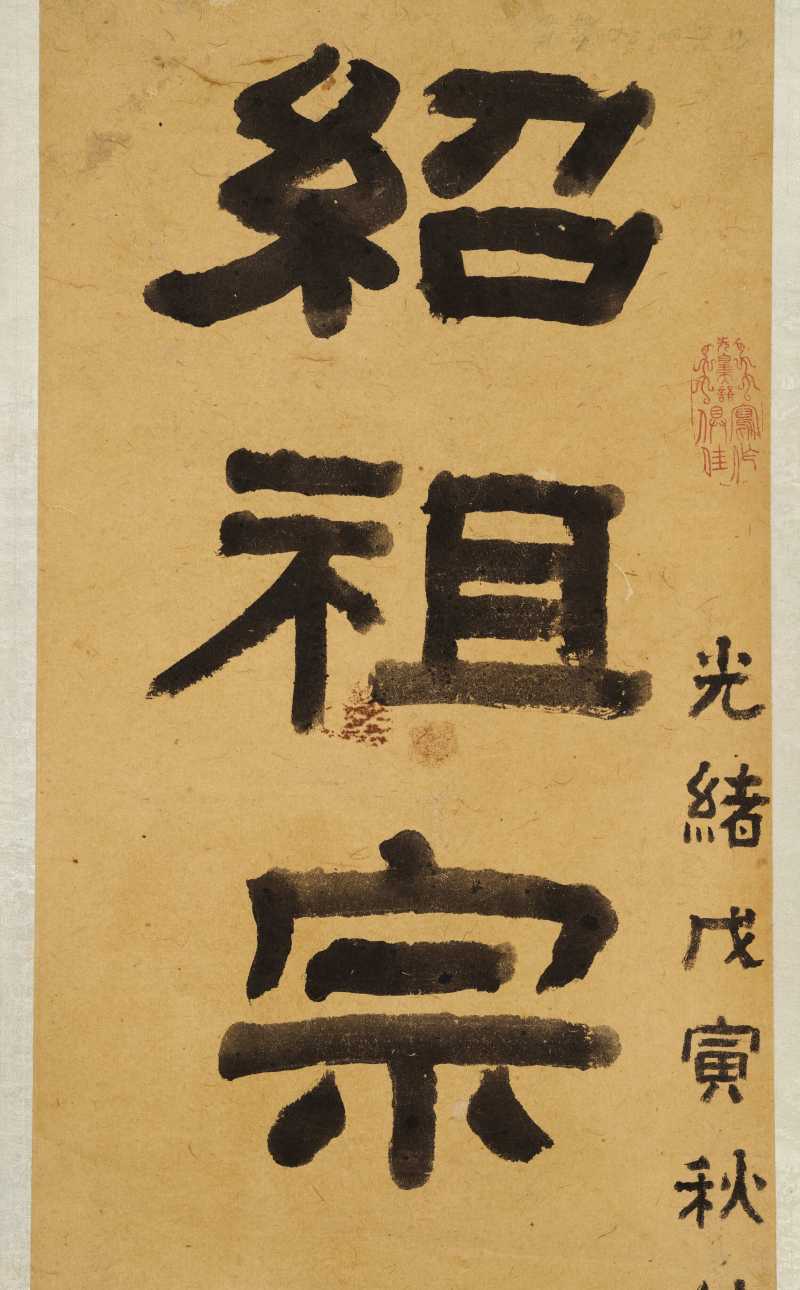 光緒戊寅秋
紹祖宗